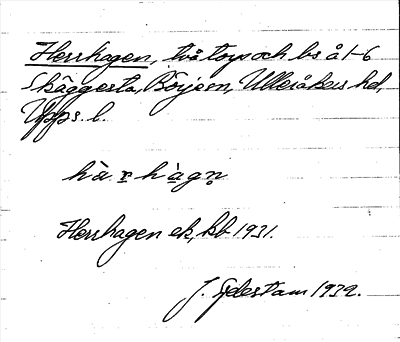 Herrhagen, två torp och bs å 1-6
Skäggesta, Börje sn, Ulleråkers hd,
Upps. l.
hà r hàgn
Herrhagen ek, kb 1931.
J. Sydestam 1932.